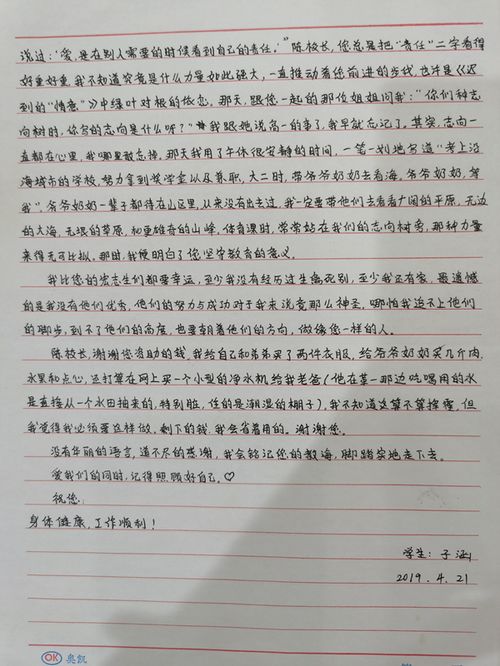 说过:“爱,是在别人需要的时候看到自己的责任。”陈校长,您总是把“责任”二字看得
好重好重,我不知道究竟是什么力量如此强大,一直推动着您前进的步伐,也许是《迟
到的“情意”》中绿叶对根的依恋。那天,跟您一起的那位姐姐问我:“你们种志
向树时,你写的志向是什么呀?”我跟她说高一的事了,我早就忘记了。其实,志向一
直都在心里,我哪里敢忘掉,那天我用了午休很安静的时间,一笔一划地写道“考上沿
海城市的学校,努力拿到奖学金以及兼职,大二时,带爷爷奶奶去看海,爷爷奶奶,等
我”。爷爷奶奶一辈子都待在山区里,从来没有出去过,我一定要带他们去看看广阔的平原,无边
的大海,无垠的草原,和更雄奇的山峰。体育课时,常常站在我们的志向树旁,那种力量
来得无可比拟。那时,我便明白了您坚守教育的意义。
我比您的宏志生们都要幸运,至少我没有经历过生离死别,至少我还有家,最遗憾
的是我没有他们优秀,他们的努力与成功对于我来说竟那么神圣,哪怕我追不上他们
的脚步,到不了他们的高度,也要朝着他们的方向,做像您一样的人。
陈校长,谢谢您资助的钱,我给自己和弟弟买了两件衣服,给爷爷奶奶买几斤肉,
水果和点心,还打算在网上买一个小型的净水机给我老爸(他在某一那边吃喝用的水
是直接从一个水田抽来的,特别脏,住的是潮湿的棚子),我不知道这算不算挥霍,但
我觉得我必须要这样做,剩下的钱,我会省着用的。谢谢您。
没有华丽的语言,道不尽的感谢,我会铭记您的教诲,脚踏实地走下去。
爱我们的同时,记得照顾好自己。♡
祝您:
身体健康,工作顺利!
学生:子涵
2019.4.21
OK 奥凯